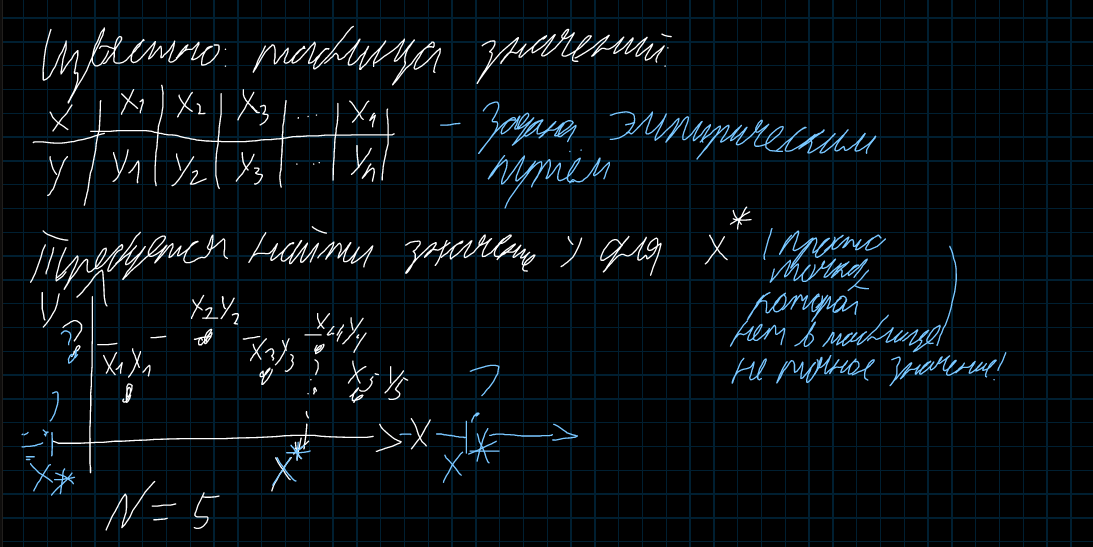 Известно: таблица значений:
X X₁ X₂ X₃ ... X₄
Y Y₁ Y₂ Y₃ ... Yₙ
- Задана эмпирическим
путём
Требуется найти значение y для X*
(просто
точка,
которой
нет в таблице)
не точное значение!
Y
?
X₁Y₁
X₂Y₂
X₃Y₃
X₄Y₄
X₅Y₅
?
?
X
X*
X*
X*
N = 5